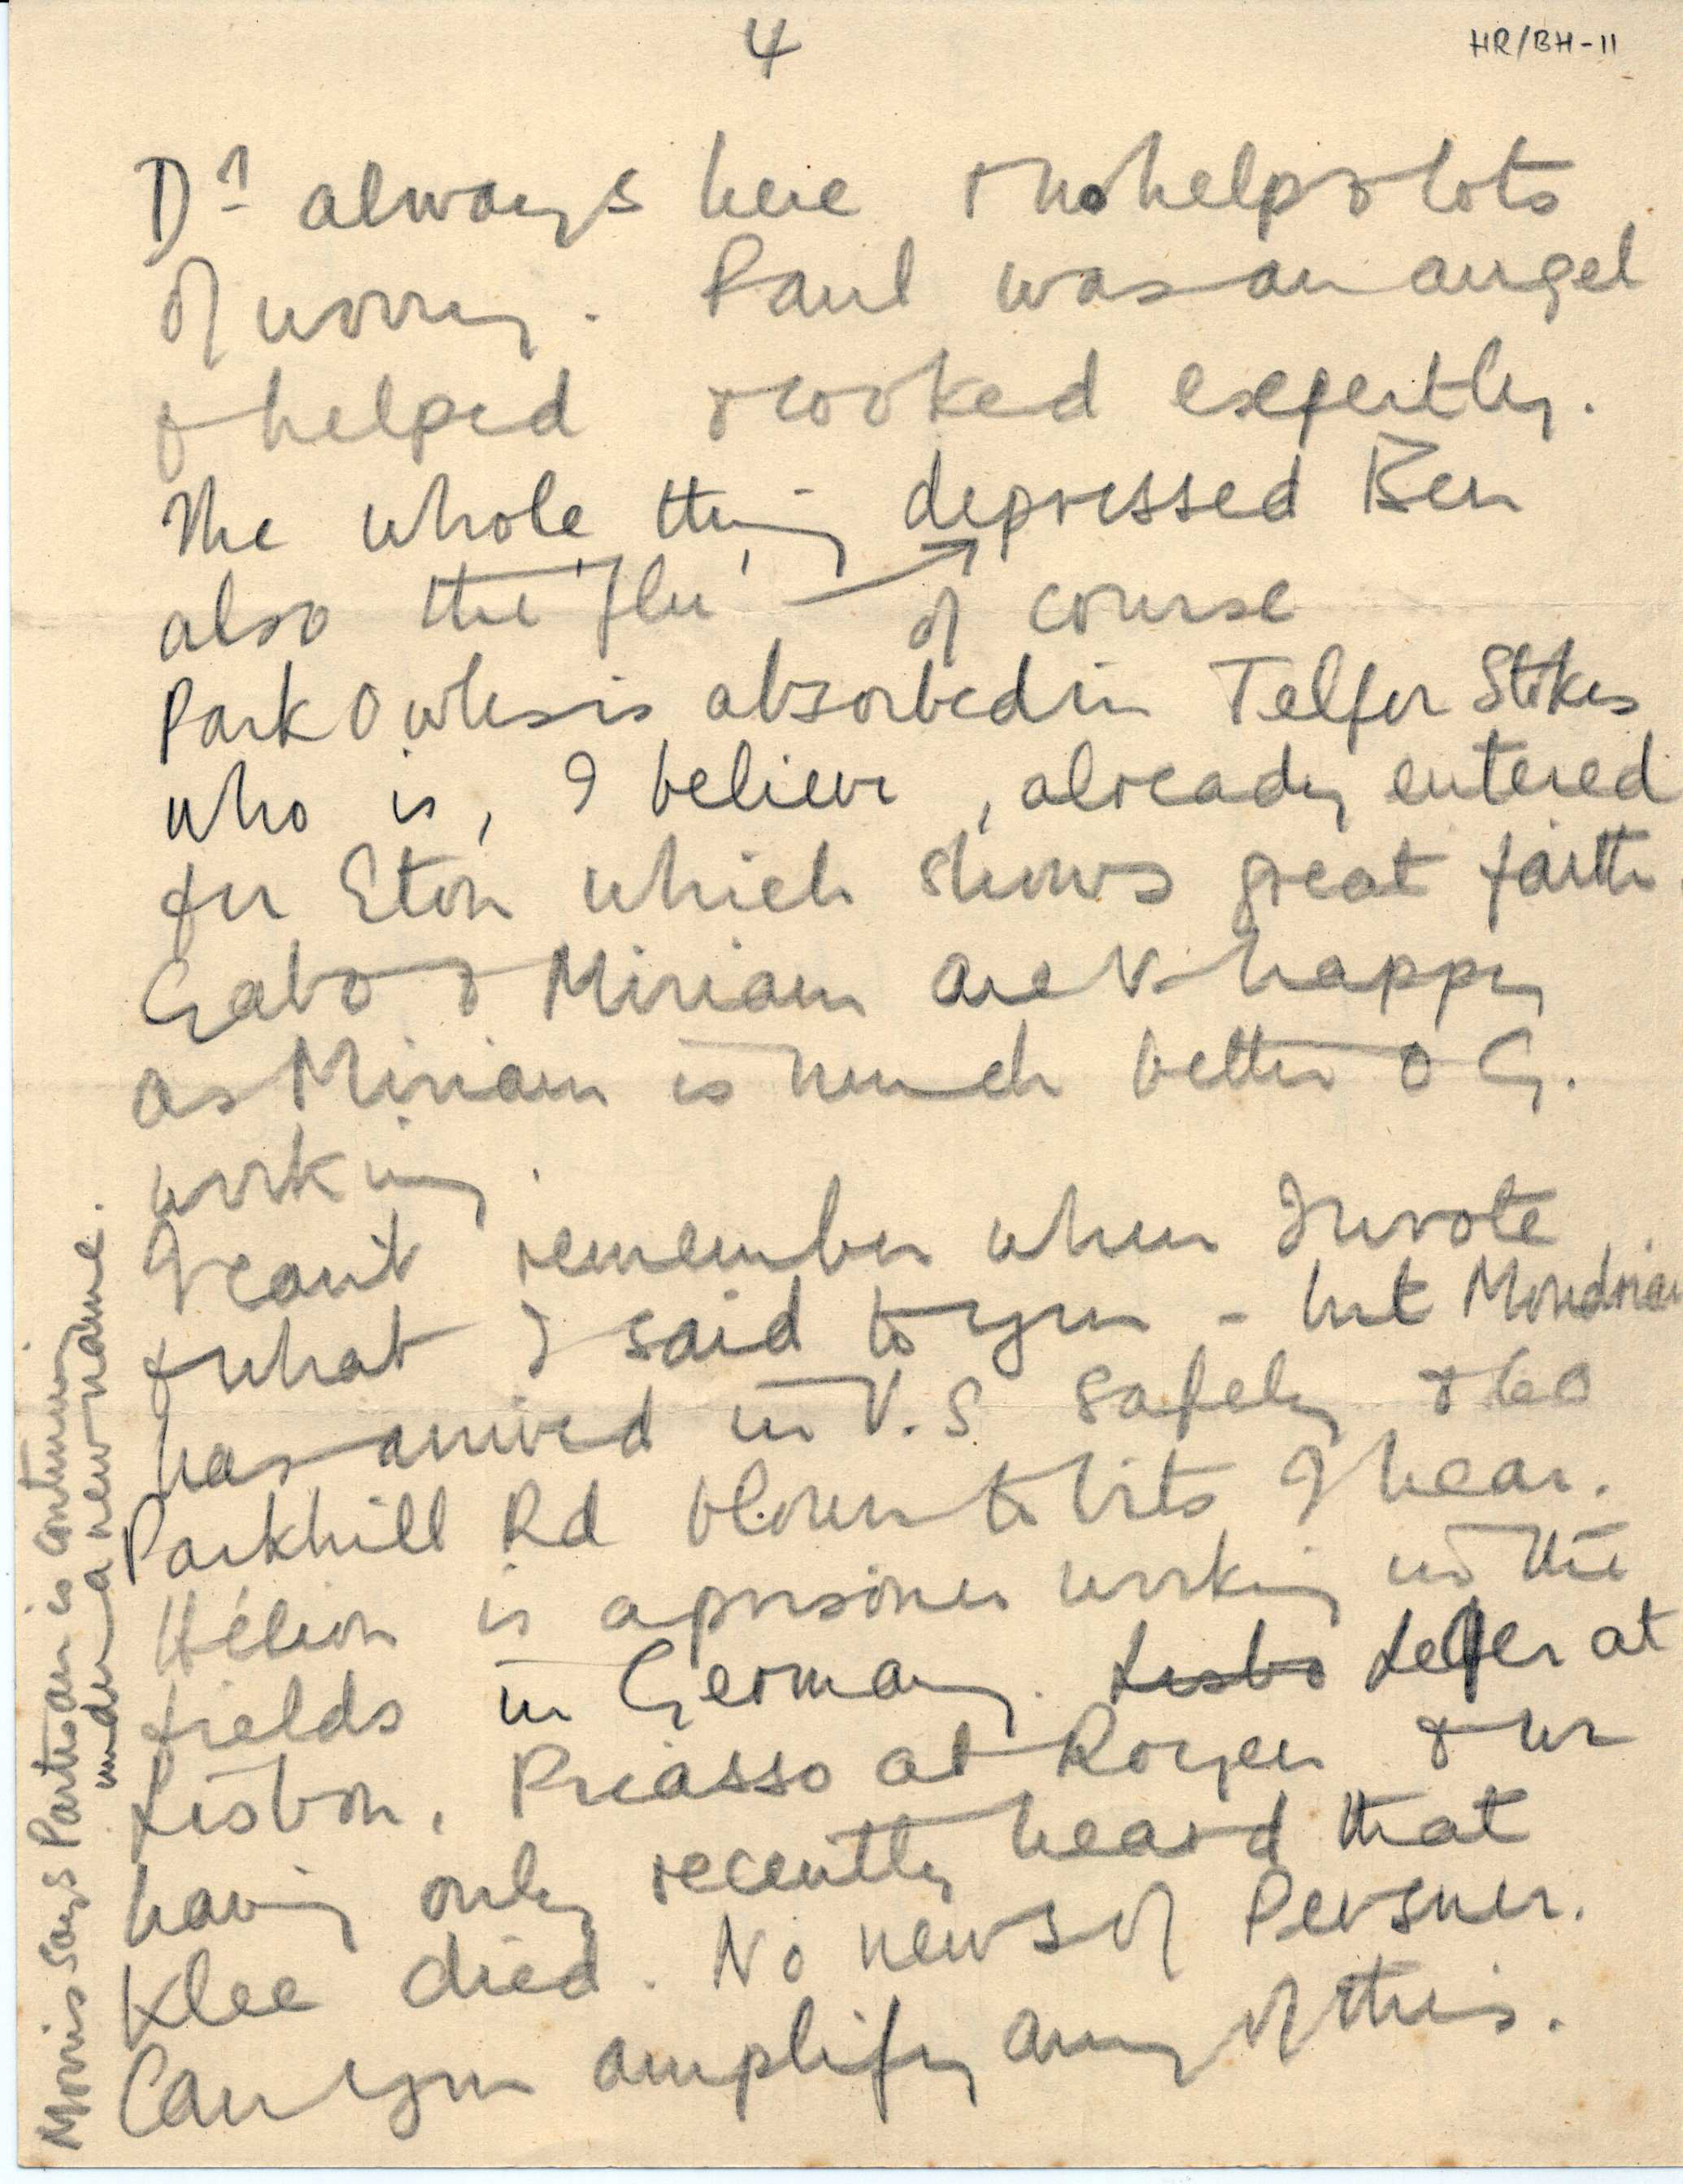 4
HR/BH-11
Dr always here & no help & lots
of worry. Paul was an angel
& helped & cooked expertly.
The whole thing depressed Ben
also the 'flu' → of course
Park Owles is absorbed in Telfer Stokes
who is, I believe, already entered
for Eton which shows great faith.
Gabo & Miriam are v happy
as Miriam is much better & G.
working.
I can't remember when I wrote
& what I said to you - but Mondrian
has arrived in U.S safely & 60
Parkhill Rd blown to bits I hear.
Hélion is a prisoner working in the
fields in Germany. Lisbo Leger at
Lisbon, Picasso at Royen & we
having only recently heard that
Klee died. No news of Pevsner.
Can you amplify any of this.
Morris says Partisan is continuing
under a new name.